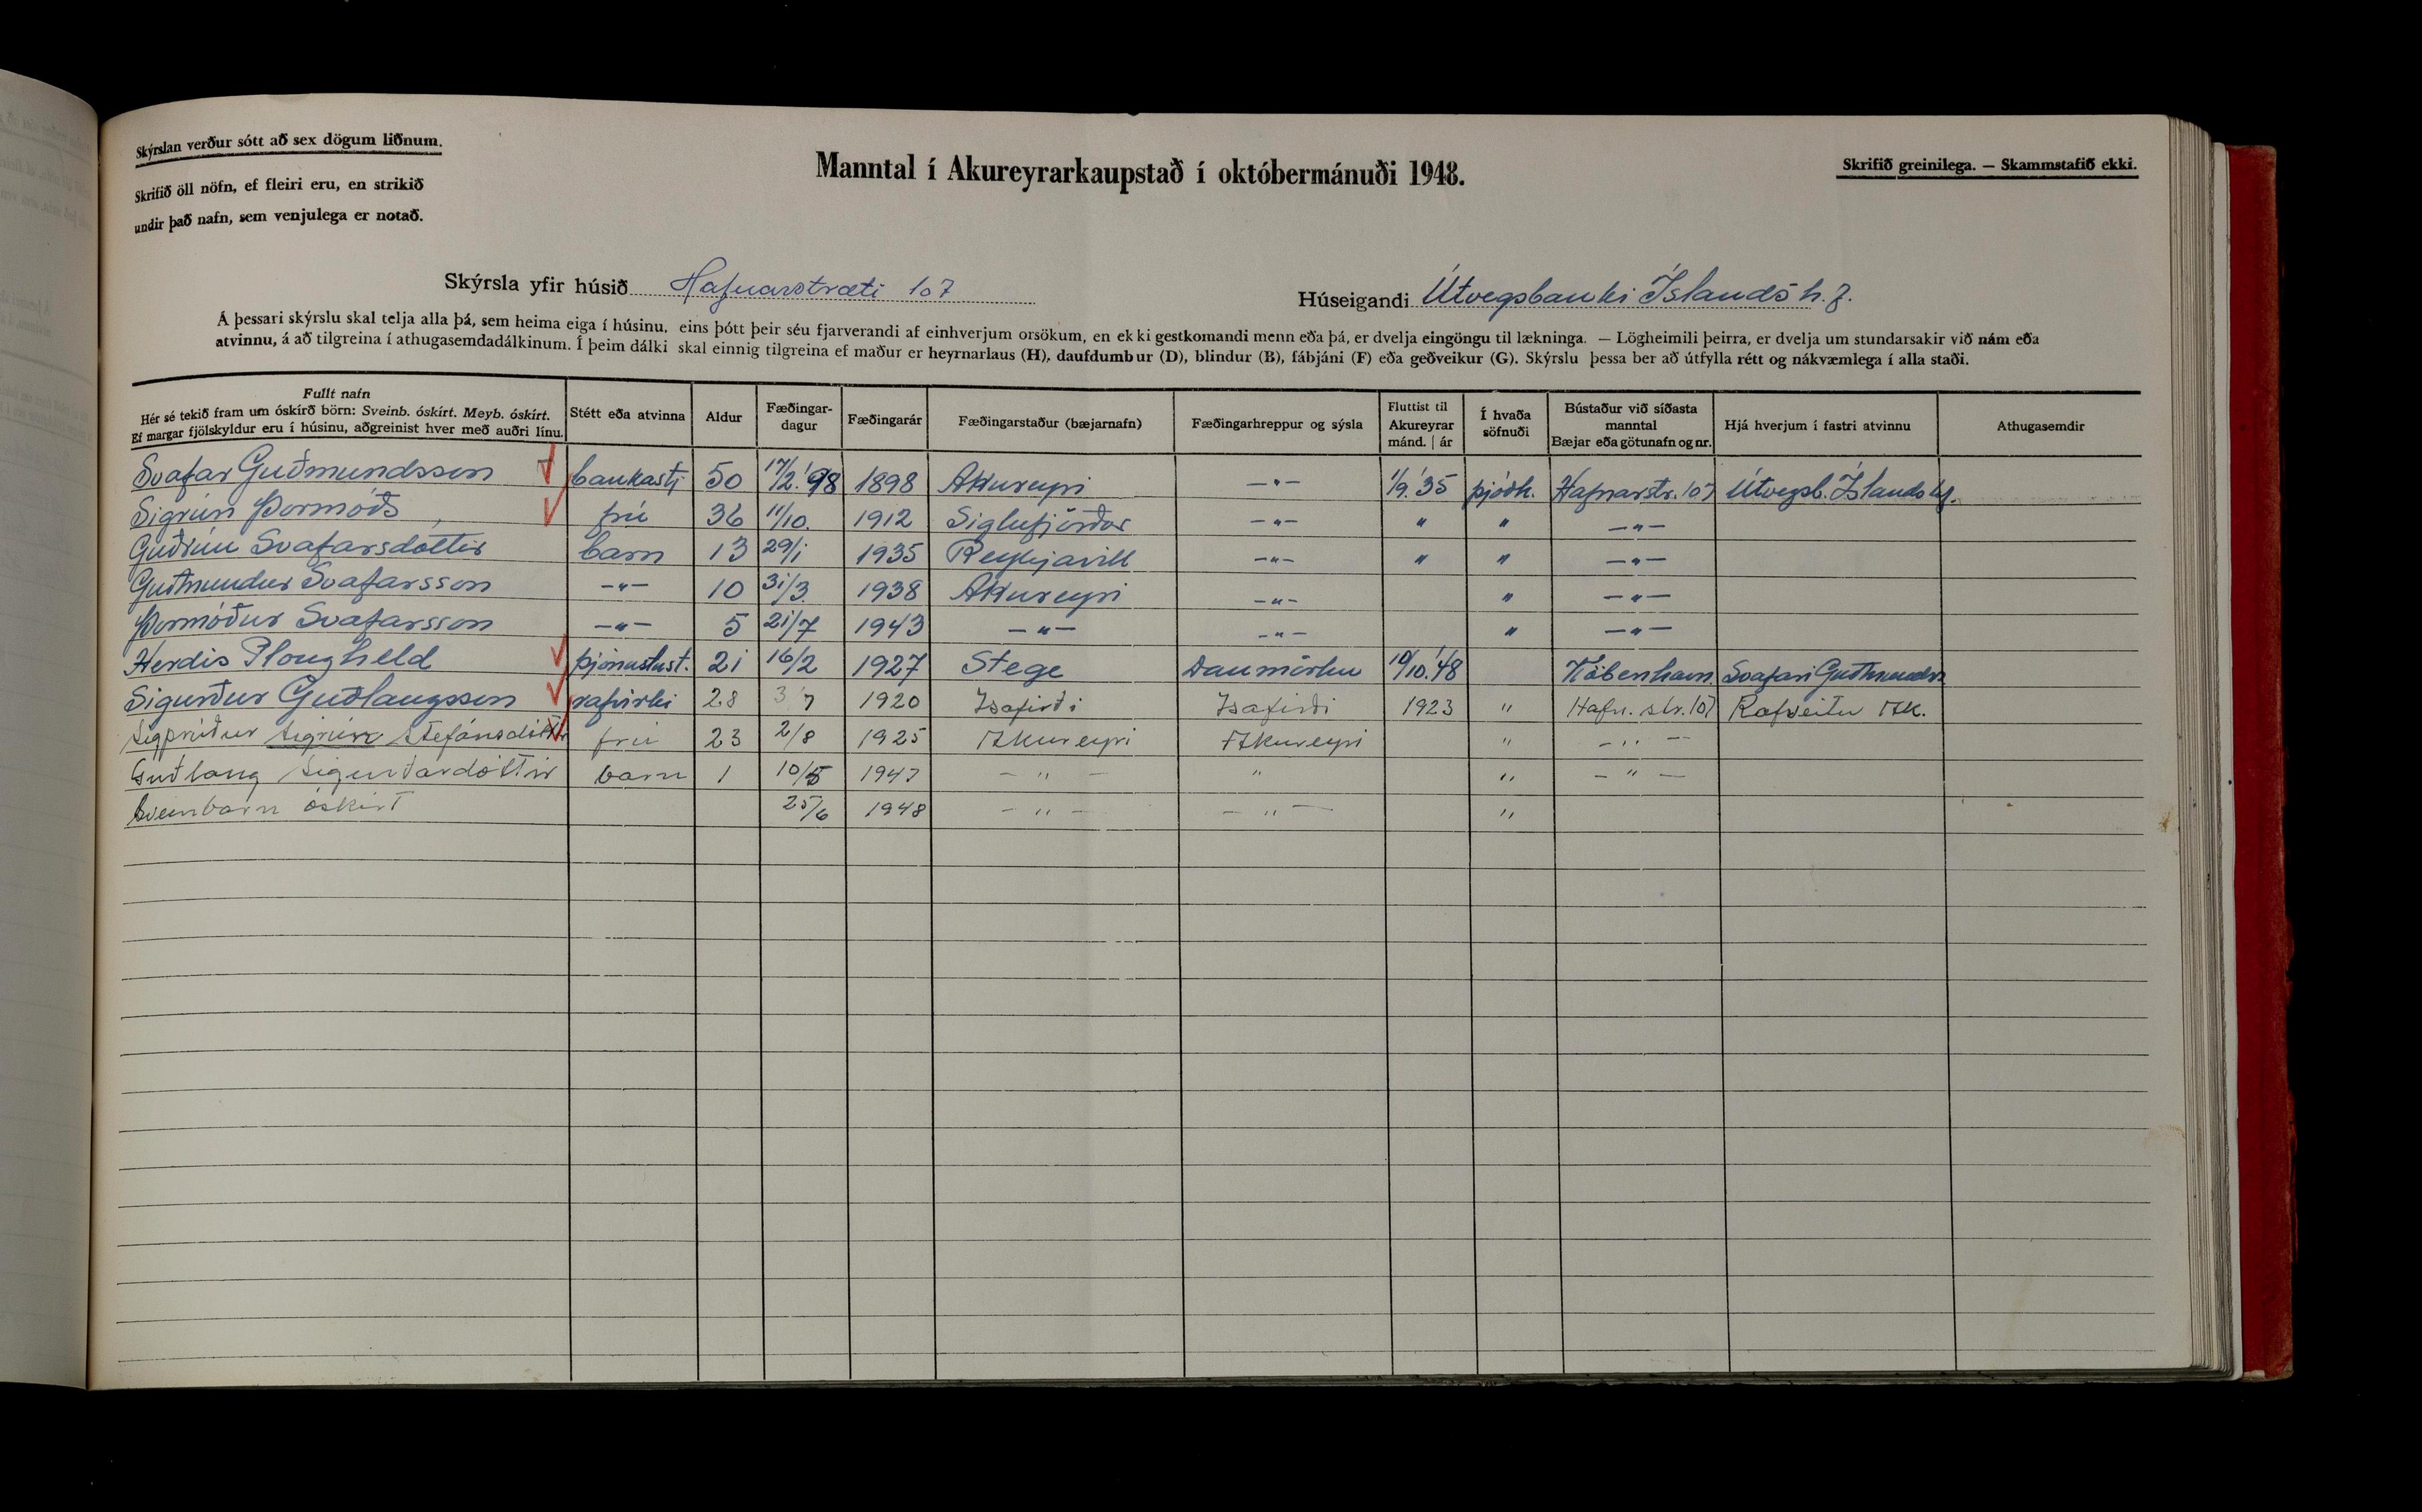 Skýrslan verður sótt að sex dögum liðnum.
Skrifið öll nöfn, ef fleiri eru, en strikið
undir það nafn, sem venjulega er notað.
Manntal í Akureyrarkaupstað í októbermánuði 1948.
Skrifið greinilega. — Skammstafið ekki.
Skýrsla yfir húsið Hafnarstræti 107
Húseigandi Útvegsbanki Íslands h.f.
Á þessari skýrslu skal telja alla þá, sem heima eiga í húsinu, eins þótt þeir séu fjarverandi af einhverjum orsökum, en ekki gestkomandi menn eða þá, er dvelja eingöngu til lækninga. — Lögheimili þeirra, er dvelja um stundarsakir við nám eða
atvinnu, á að tilgreina í athugasemdadálkinum. Í þeim dálki skal einnig tilgreina ef maður er heyrnarlaus (H), daufdumbur (D), blindur (B), fábjáni (F) eða geðveikur (G). Skýrslu þessa ber að útfylla rétt og nákvæmlega í alla staði.
Fullt nafn Hér sé tekið fram um óskírð börn: Sveinb. óskírt. Meyb. óskírt. Ef margar fjölskyldur eru í húsinu, aðgreinist hver með auðri línu. Stétt eða atvinna Aldur Fæðingar-dagur Fæðingarár Fæðingarstaður (bæjarnafn) Fæðingarhreppur og sýsla Fluttist til Akureyrar mánd. | ár Í hvaða söfnuði Bústaður við síðasta manntal Bæjar eða götunafn og nr. Hjá hverjum í fastri atvinnu Athugasemdir
Svafar Guðmundsson bankastj 50 17/2.'98 1898 Akureyri —"— 1/9.'35 þjóðk. Hafnarstr. 107 Útvegsb. Íslands hf.
Sigrún Þormóðs frú 36 11/10. 1912 Siglufjörður —"— " " —"—
Guðrún Svafarsdóttir barn 13 29/1 1935 Reykjavík —"— " " —"—
Guðmundur Svafarsson —"— 10 31/3. 1938 Akureyri —"— " —"—
Þormóður Svafarsson —"— 5 21/7 1943 —"— —"— " —"—
Herdis Plougheld þjónustust. 21 16/2 1927 Stege Danmörku 10/10.'48 Köbenhavn. Svafari Guðmundss
Sigurður Guðlaugsson rafvirki 28 3 7 1920 Ísafirði Ísafirði 1923 " Hafn. str. 107 Rafveitu Ak.
Sigþrúður Sigrún Stefánsdóttir frú 23 2/8 1925 Akureyri Akureyri " —"—
Guðlaug Sigurðardóttir barn 1 10/5 1947 —"— " " —"—
Sveinbarn óskírt 25/6 1948 —"— —"— "